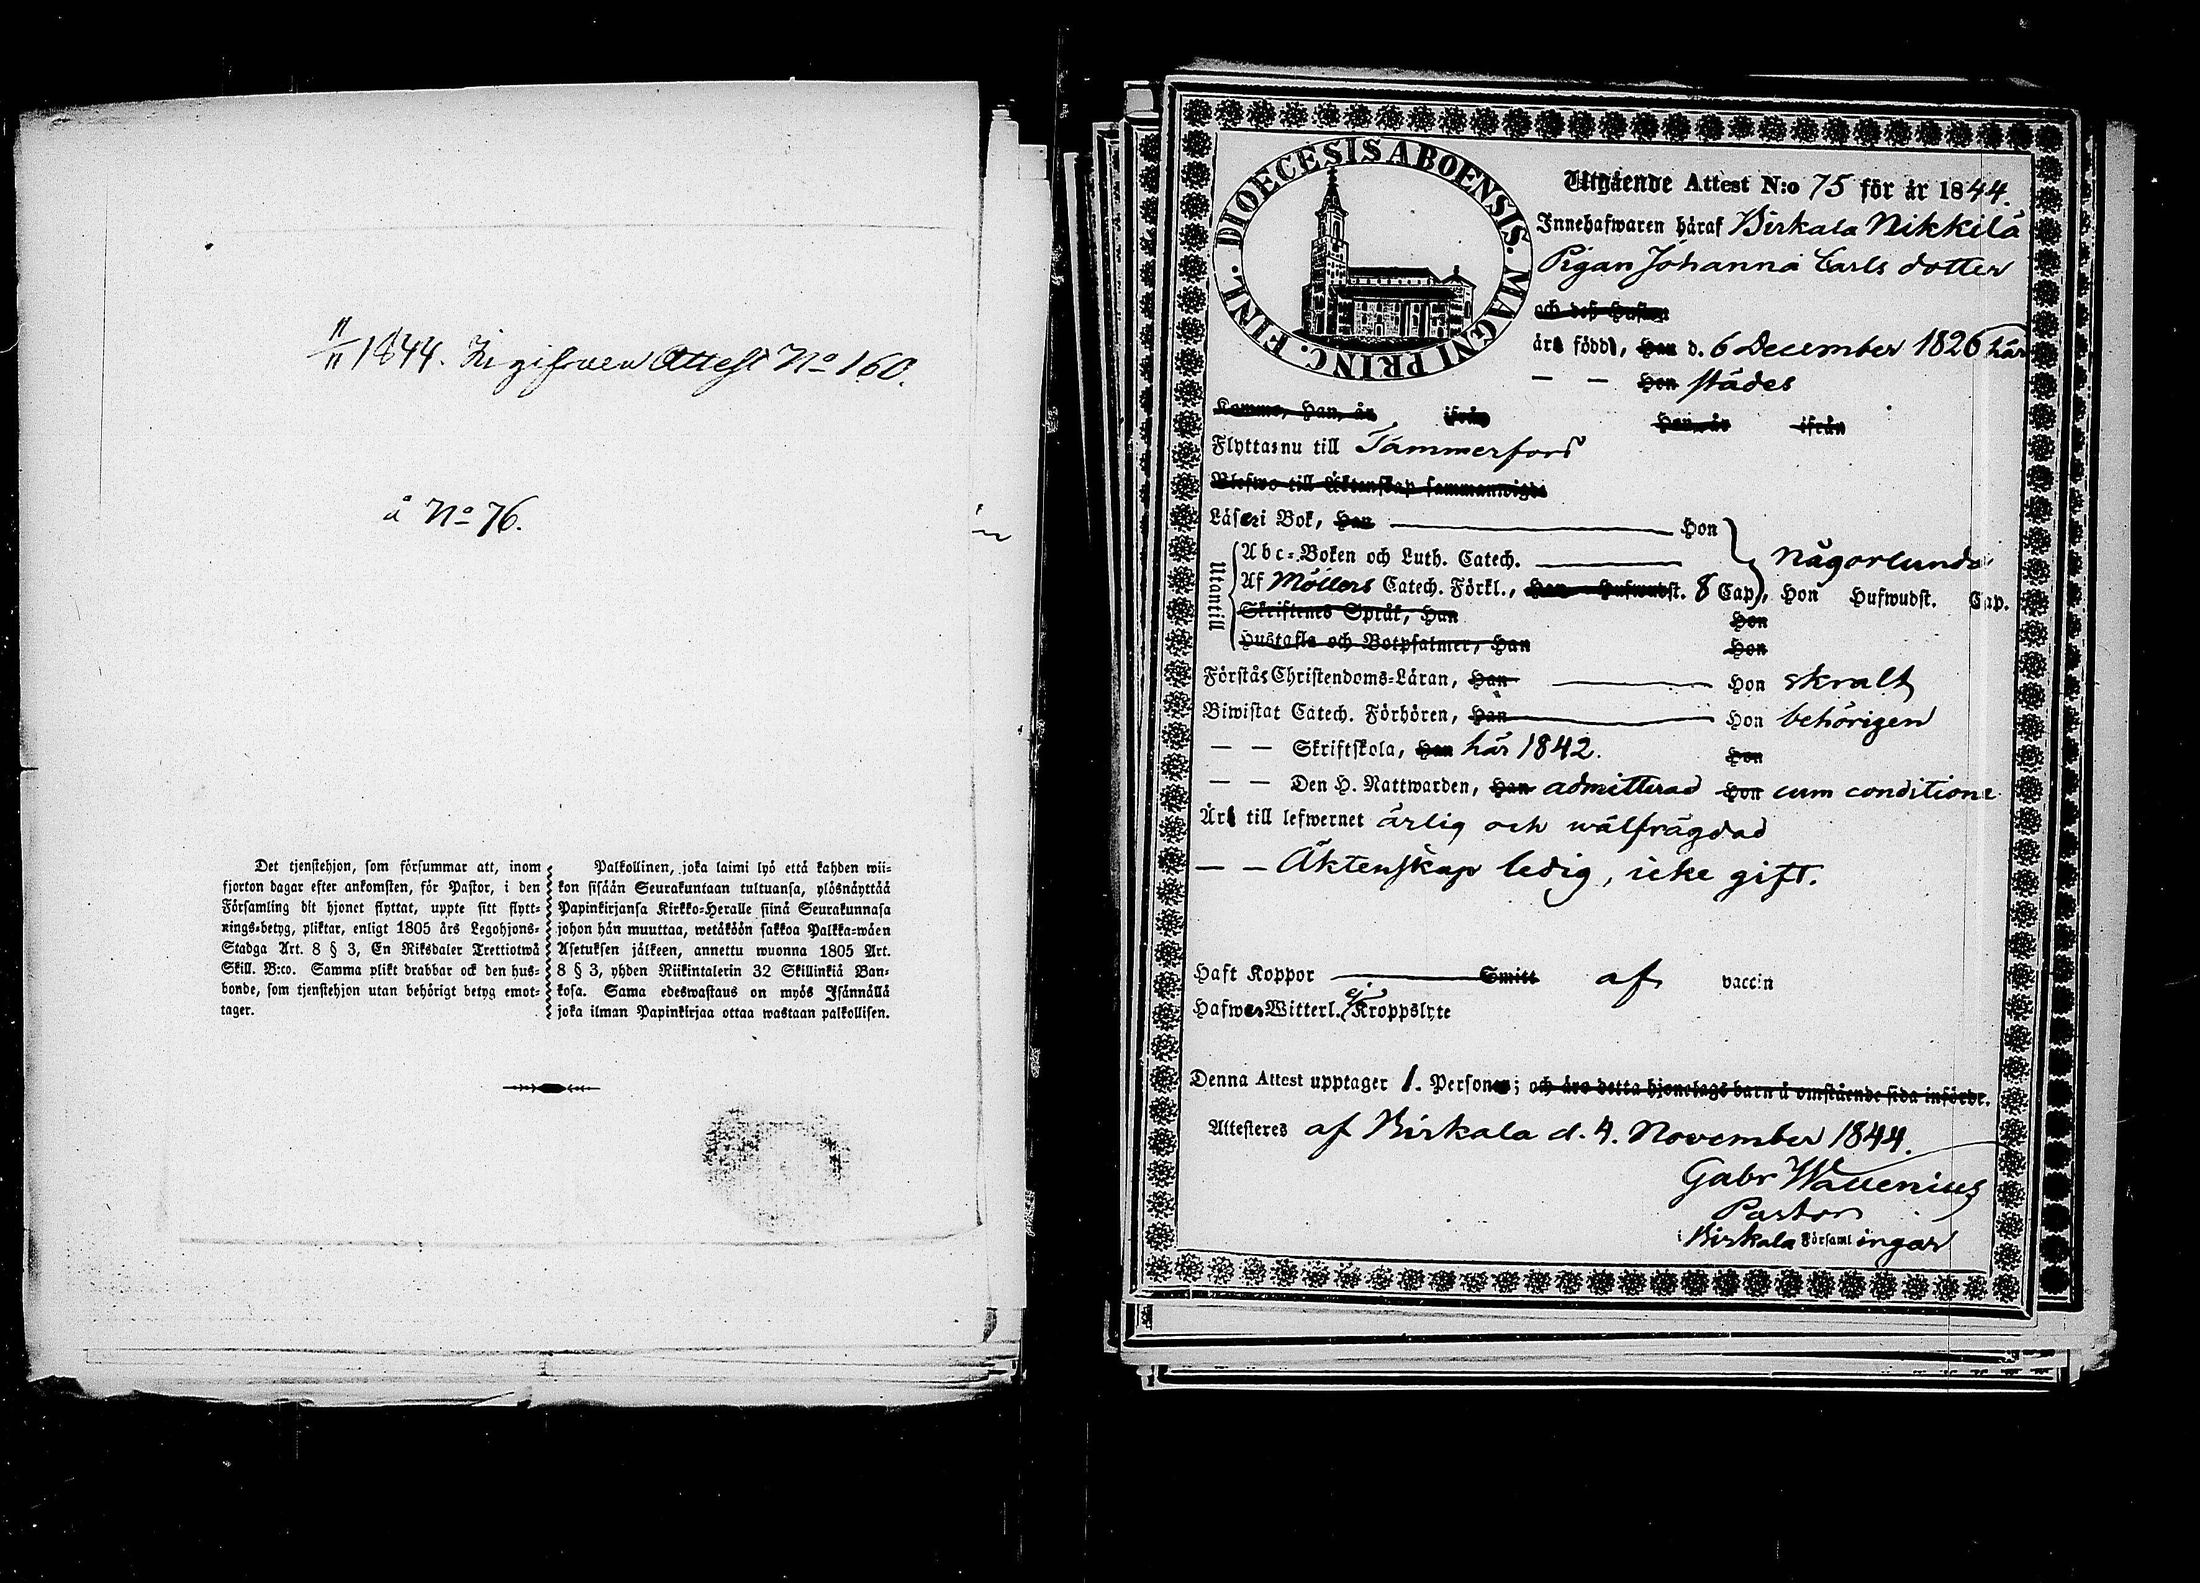 11/11 1844. Ingifven Attest No 160.
å No 76.
Det tjenstehjon, som försummar att, inom
fjorton dagar efter ankomsten, för Pastor, i den
Församling dit hjonet flyttat, uppte sitt flytt-
nings-betyg, pliktar, enligt 1805 års Legohjons-
Stadga Art. 8 § 3, En Riksdaler Trettiotwå
Skill. B:co. Samma plikt drabbar ock den hus-
bonde, som tjenstehjon utan behörigt betyg emot-
tager.
Palkollinen, joka laimi lyö että kahden wii-
kon sisään Seurakuntaan tultuansa, ylösnäyttää
Papinkirjansa Kirkko-Heralle siinä Seurakunnasa
johon hän muuttaa, wetäköön sakkoa Palkka-wäen
Asetuksen jälkeen, annettu wuonna 1805 Art.
8 § 3, yhden Riikintalerin 32 Skillinkiä Ban-
kosa. Sama edeswastaus on myös Isännällä
joka ilman Papinkirjaa ottaa wastaan palkollisen.
DIOECESIS ABOENSIS. MAGNI PRINC. FINL.
Utgående Attest N:o 75 för år 1844.
Innehafwaren häraf Birkala Nikkilä
Pigan Johanna Carls dotter
och deß Hustru
äro födde, Han d. 6 December 1826 här
— — Hon städes
Komne, Han, år ifrån Hon, år ifrån
Flyttas nu till Tammerfors
Blefwo till Äktenskap sammanwigde
Läser i Bok, Han Hon
Utantill
Abc-Boken och Luth. Catech. någorlunda
Af Möllers Catech. Förkl., Han Hufwudst. 8 Cap., Hon Hufwudst. Cap.
Skriftenes Språk, Han Hon
Hustafla och Botpsalmer, Han Hon
Förstår Christendoms-Läran, Han Hon skralt
Biwistat Catech. Förhören, Han Hon behörigen
— — Skriftskola, Han här 1842. Hon
— — Den H. Nattwarden, Han admitterad Hon cum conditione
Är till lefwernet ärlig och wälfrägdad
— — Äktenskap ledig, icke gift.
Haft Koppor Smitt af vaccin
Hafwer Witterl. ej Kroppslyte
Denna Attest upptager 1. Person; och äro detta hjonelags barn å omstående sida införde.
Attesteres af Birkala d. 4. November 1844.
Gabr Wallenius
Pastor
i Birkala Församl ingar